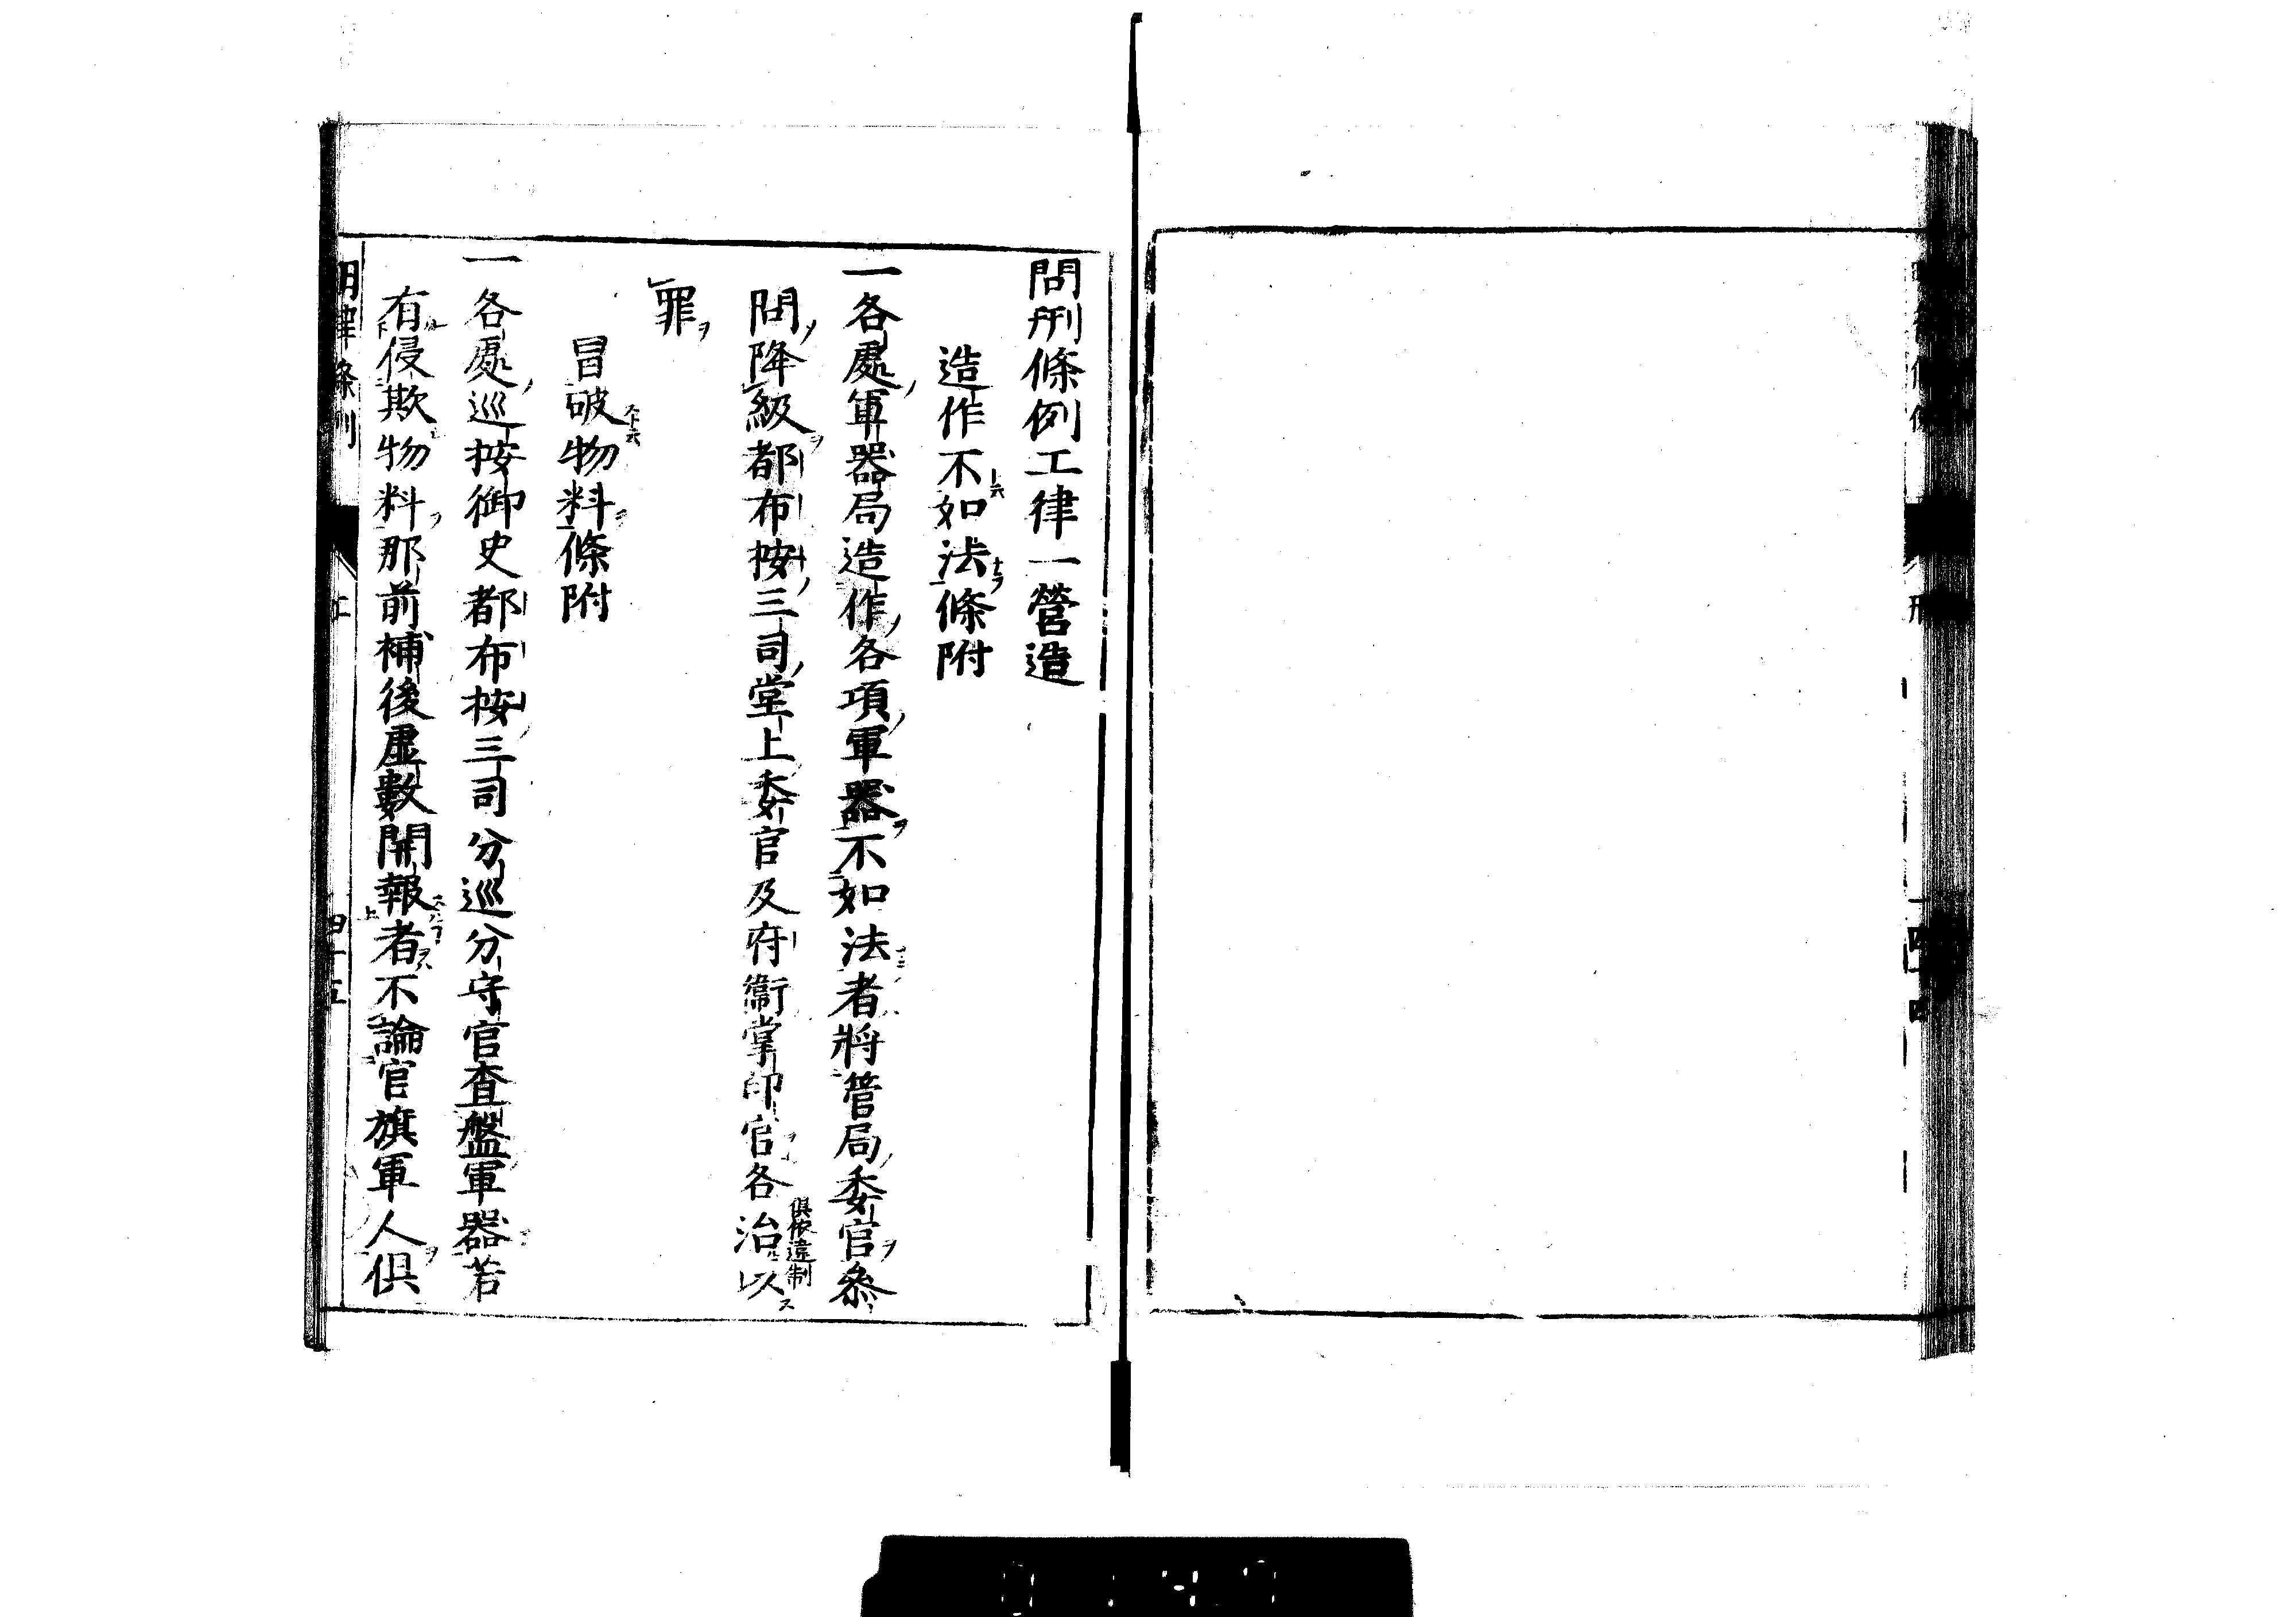 問刑條例工律一營造
造作不如法條附
一各處軍器局造作各項軍器不如法者將管局委官叅
問降級都布按三司堂上委官及府衞掌印官各治以
俱依違制
罪
冒破物料條附
一各處巡按御史都布按三司分巡分守官査盤軍器若
有侵欺物料那前補後虛數開報者不論官旗軍人俱
明律條例
工
四十五